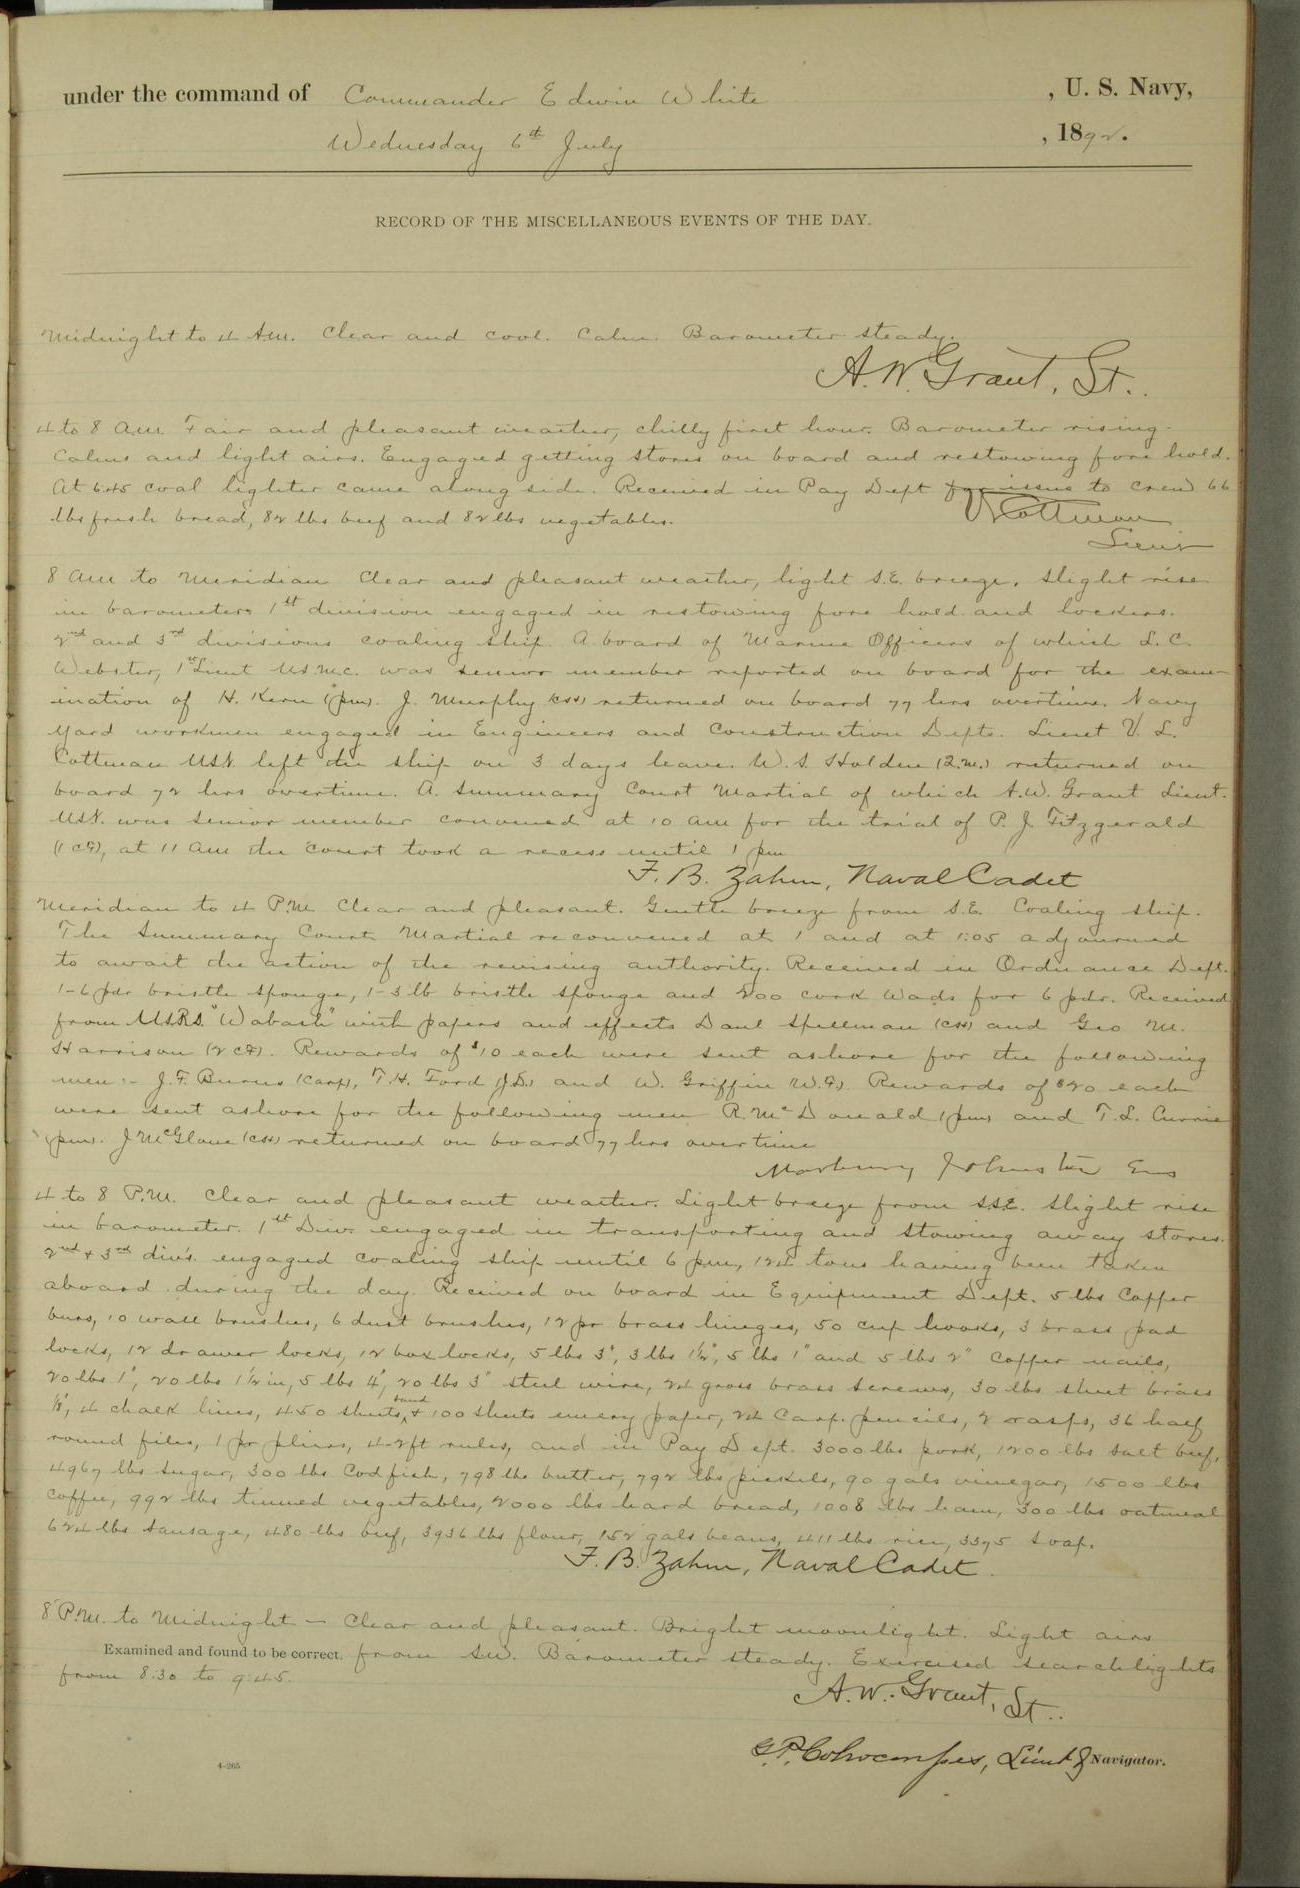 under the command of Commander Edwin White , U. S. Navy,
Wednesday 6th July , 1892.
RECORD OF THE MISCELLANEOUS EVENTS OF THE DAY.
Midnight to 4 AM. Clear and cool. Calm. Barometer steady.
A. W. Grant, Lt..
4 to 8 A.M. Fair and pleasant weather, chilly first hour. Barometer rising.
Calms and light airs. Engaged getting stores on board and restowing fore hold.
At 6.45 coal lighter came along side. Received in Pay Dept for issue to crew 66
lbs fresh bread, 82 lbs beef and 82 lbs vegetables.
V L Cottman
Lieut
8 AM to Meridian Clear and pleasant weather, light S.E. breeze. Slight rise
in barometer. 1st division engaged in restowing fore hold and lockers.
2nd and 3rd divisions coaling ship. A board of Marine Officers of which L. C.
Webster, 1st Lieut U.S.M.C. was senior member reported on board for the exam-
ination of H. Kern (pm). J. Murphy (CH) returned on board 77 hrs overtime. Navy
Yard workmen engaged in Engineers and Construction Depts. Lieut V. L.
Cottman USN. left the ship on 3 days leave. W. S. Holden (Q.M.) returned on
board 72 hrs overtime. A. Summary Court Martial of which A. W. Grant Lieut.
USN. was senior member convened at 10 AM for the trial of P. J. Fitzgerald
(1 CF), at 11 AM the court took a recess until 1 pm
F. B. Zahm, Naval Cadet
Meridian to 4 P.M. Clear and pleasant. Gentle breeze from S.E. Coaling ship.
The Summary Court Martial reconvened at 1 and at 1:05 adjourned
to await the action of the revising authority. Received in Ordnance Dept.
1-6 pdr bristle sponge, 1-3 lb bristle sponge and 200 cork wads for 6 pdr. Received
from U.S.R.S. "Wabash" with papers and effects Danl Spellman (CH) and Geo M.
Harrison (2 CF). Rewards of $10 each were sent ashore for the following
men:- J. F. Burns (Carp), T. H. Ford (J.D.) and W. Griffin (W.F.) Rewards of $20 each
were sent ashore for the following men R. McDonald (pm) and T. L. Currie
(pm). J McGlone (CH) returned on board 77 hrs overtime
Marbury Johnston Ens
4 to 8 P.M. Clear and pleasant weather. Light breeze from S.S.E. Slight rise
in barometer. 1st Div. engaged in transporting and stowing away stores.
2nd & 3rd div's. engaged coaling ship until 6 pm, 124 tons having been taken
aboard during the day. Received on board in Equipment Dept. 5 lbs copper
burs, 10 wall brushes, 6 dust brushes, 12 pr brass hinges, 50 cup hooks, 3 brass pad
locks, 12 drawer locks, 12 box locks, 5 lbs 3", 3 lbs 1½", 5 lbs 1" and 5 lbs 2" copper nails,
20 lbs 1", 20 lbs 1½ in, 5 lbs 4", 20 lbs 3" steel wire, 24 gross brass screws, 30 lbs sheet brass
⅛", 4 chalk lines, 450 sheets sand & 100 sheets emery paper, 24 Carp. pencils, 2 rasps, 36 half
round files, 1 pr pliers, 4-2ft rules, and in Pay Dept. 3000 lbs pork, 1200 lbs salt beef,
4967 lbs sugar, 300 lbs Codfish, 798 lbs butter, 792 lbs pickels, 90 gals vinegar, 1500 lbs
coffee, 992 lbs tinned vegetables, 2000 lbs hard bread, 1008 lbs ham, 300 lbs oatmeal
624 lbs sausage, 480 lbs beef, 3936 lbs flour, 152 gals beans, 411 lbs rice, 3375 soap.
F. B. Zahm, Naval Cadet.
8 P.M. to Midnight - Clear and pleasant. Bright moonlight. Light airs
Examined and found to be correct. from SW. Barometer steady. Exercised searchlights
from 8:30 to 9:45.
A. W. Grant, Lt..
Lieut & Navigator.
4-265